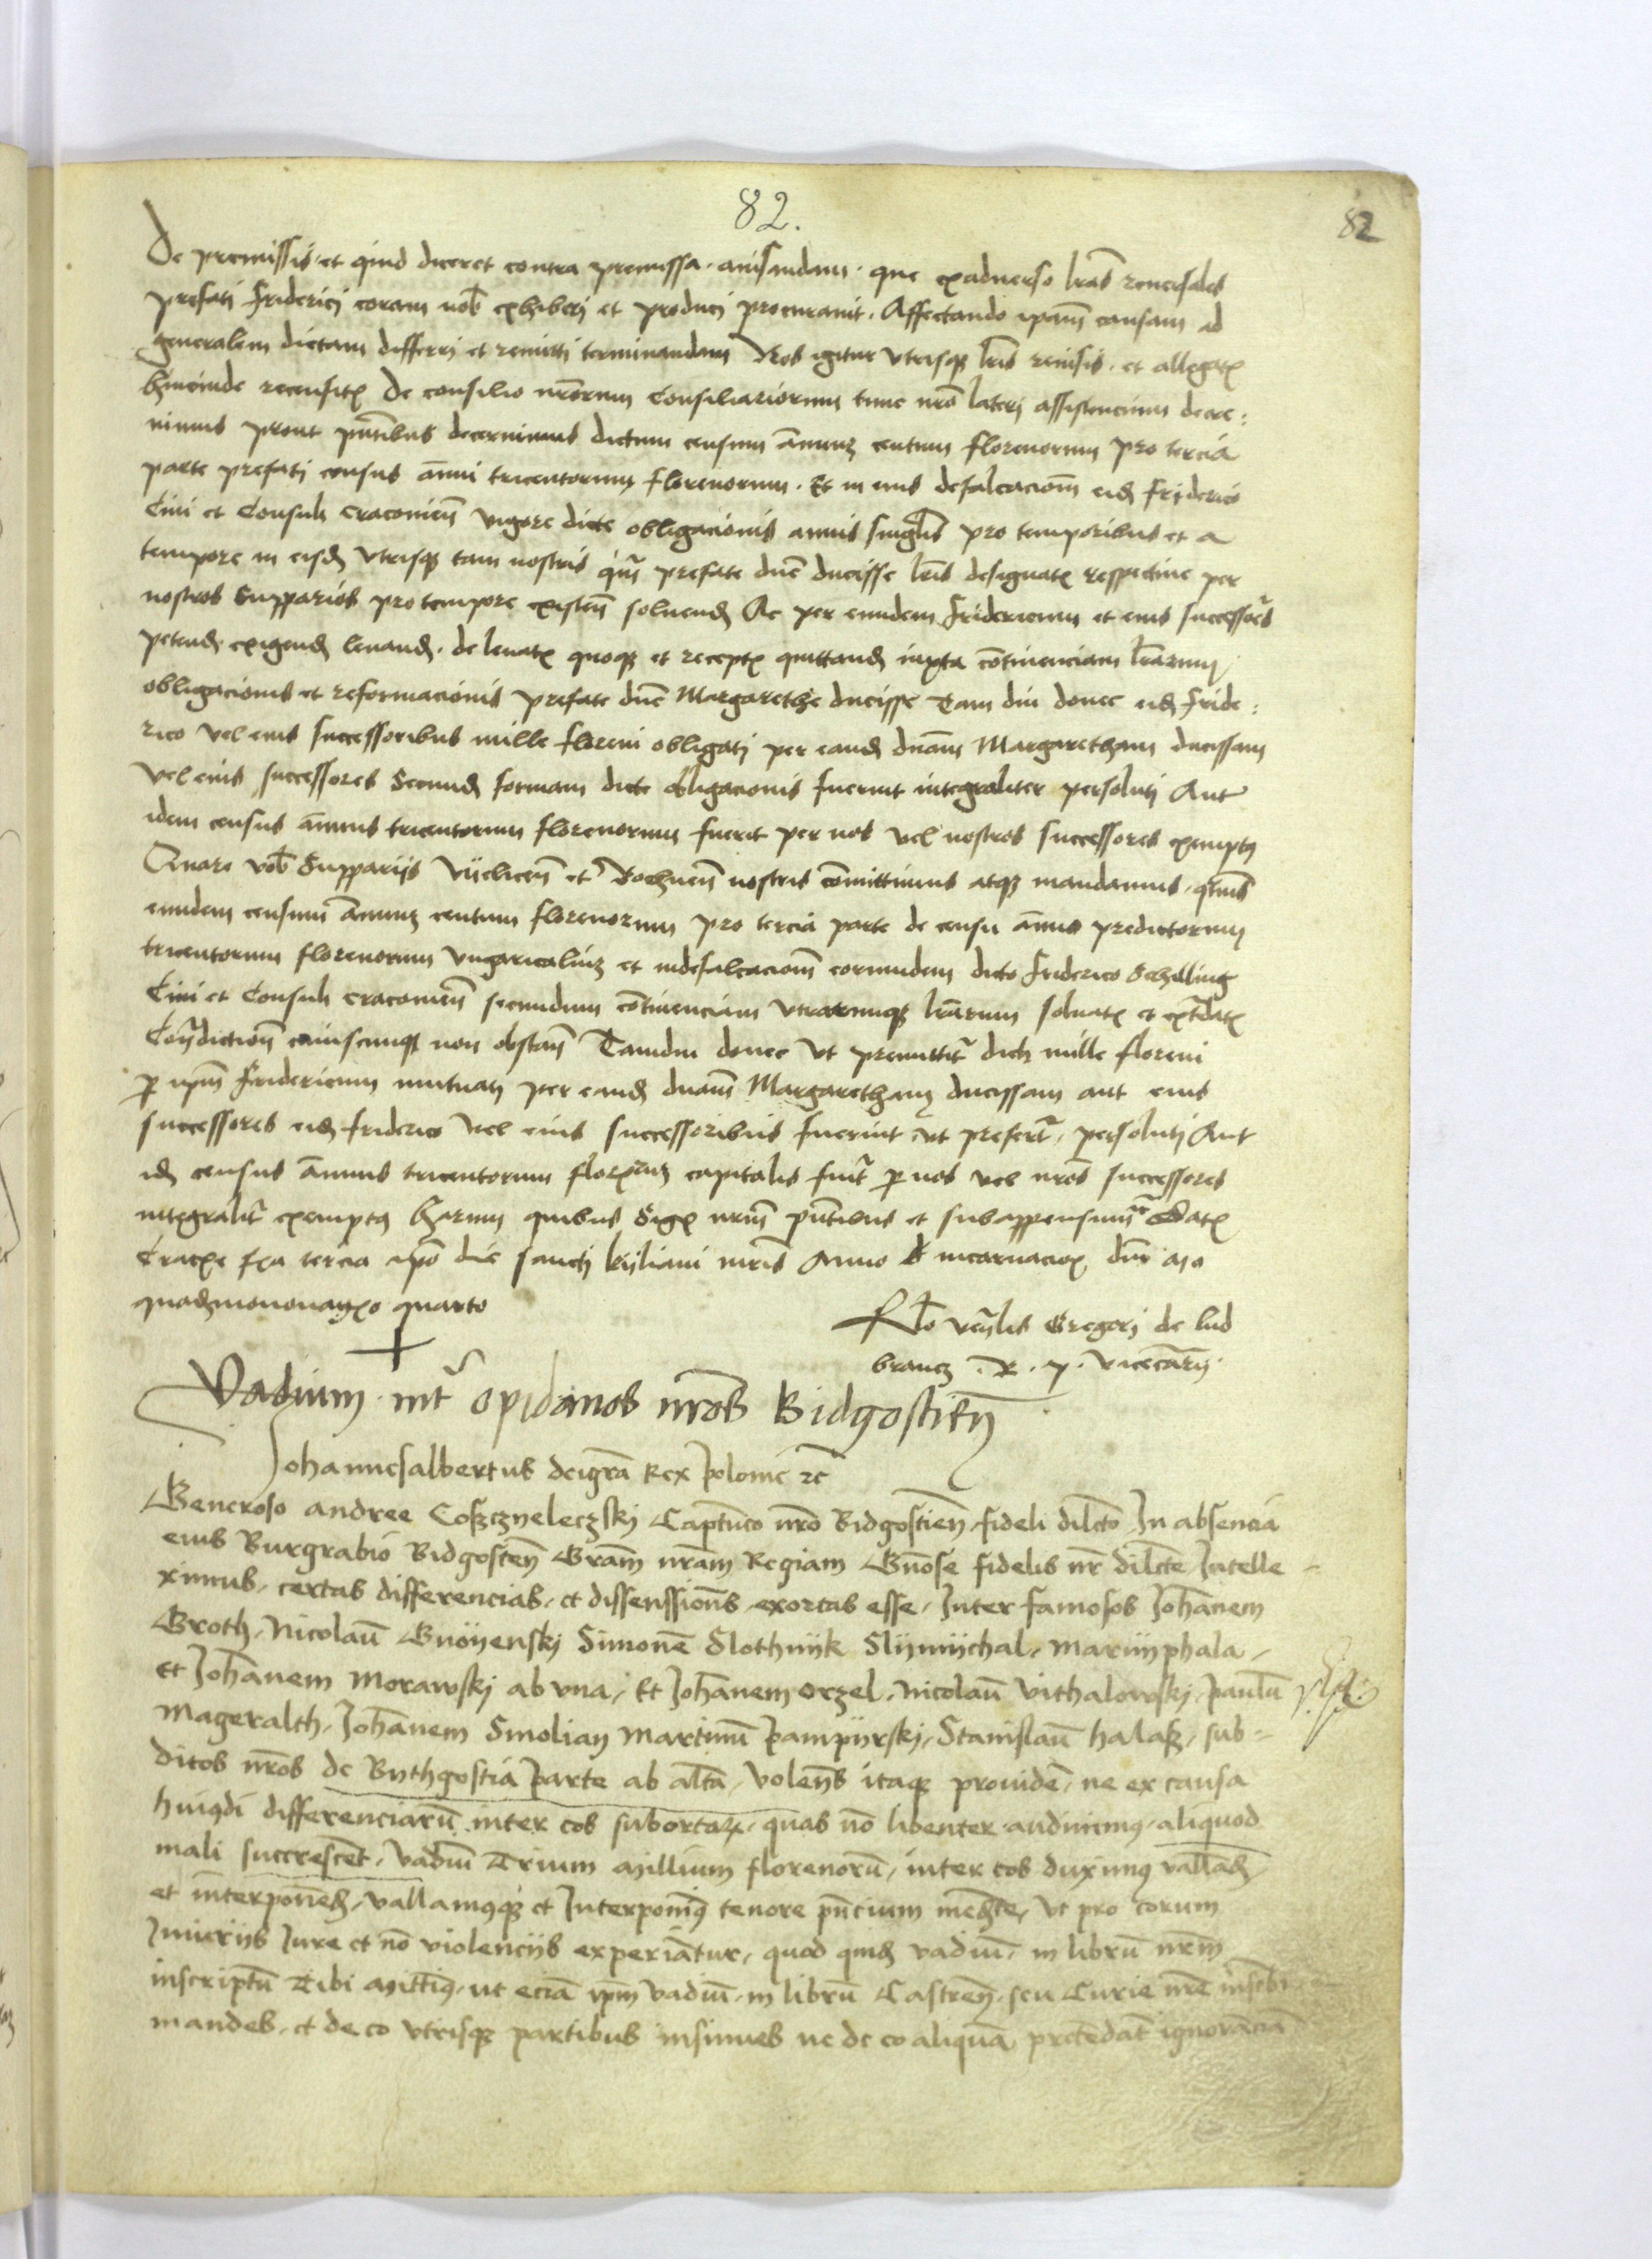 82.
82
De premissis et quid diceret contra premissa auisandam que exaduerso lras reuersales
prefati Friderici coram nob exhiberi et produci procurauit. Affectando ipam causam ad
generalem dietam differri et remitti terminandam Nos igitur vtrisqz lris reuisis et allegatz
hincinde recensitz De consilio nrorum Consiliariorum tunc nro lateri assistencium decre:
nimus prout pntibus decernimus dictum censum annuz centum florenorum pro tercia
parte prefati census annui tricentorum florenorum. Et in eius defalcacionem eid Friderico
Ciui et Consuli cracouien vigore dicte obligacionis annis singlis pro temporibus et a
tempore in eisd vtrisqz tam nostris qm prefate dne ducisse lris designatz respectiue per
nostros Supparios pro tempore existen soluend Ac per eundem Fridericum et eius successores
petend exigend leuand. de leuatz quoqz et receptz quittand iuxta continenciam lrarum
obligacionis et reformacionis prefate dne Margarethe ducisse Tam diu donec eid Fride:
rico vel eius successoribus mille floreni obligati per eand dnam Margaretham ducissam
vel eius successores Secund formam dicte obligacionis fuerint integraliter persoluti Aut
idem census annuus tricentorum florenorum fuerit per nos vel nostros successores exemptus
Quare vob Suppariis Vijelicen et Bochnen nostris committimus atqz mandamus, qtnus
eundem censum annuz centum florenorum pro tercia parte de censu annuo predictorum
tricentorum florenorum vngaricaliuz et indefalcacionem eorundem dicto Friderico Schilling
Ciui et Consuli cracouien secundum continenciam vtrarumqz lrarum soluatz et extdatz
Contradiction cuiuscunqz non obstan Tamdiu donec vt premittitr dicti mille floreni
p ipm Fridericum mutuati per eand dnam Margaretham ducissam aut eius
successores eid Friderico vel eius successoribus fuerint vt prefertr, persoluti Aut
id census annuus tricentorum florenoruz capitalis fuit p nos vel nros successores
integralitr exemptus Harum quibus Sigz nrum pntibus et subappensum Datz
Cracoie fia tercia ipo die sancti kyliani mris Anno incarnacioz dni mo
quadzmononagzo quarto
Rlo venlis Gregorj de lud
brancz . R. p. vicecancrij.
Vadium intr opidanos nros Bidgostien
Johannesalbertus deigra Rex polonie rc
Generoso andree Cosczyeleczski Captneo nro Bidgostien fideli dilcto In absencia
eius Burgrabio Bidgosten Gram nram Regiam Gnose fidelis nr dilcte Intelle-
ximus, certas differencias, et dissenssiones exortas esse, Inter famosos Johanem
Groth, Nicolau Gnoyenski Simone Slothnijk Slijmijchal, Marcijphala,
Et Johanem Morawski ab vna, Et Johanem orzel, Nicolau Vithalowski, paulu
Mageralth, Johanem Smolian Martinu pampijrski, Stanislau halasz, sub-
ditos nros de Bythgostia parte ab alta, volens itaqz prouide, ne ex causa
huiqdi differenciaru inter eos subortarz, quas no libenter audiuimus, aliquod
mali succrescet, vadiu Trium millium florenoru, inter eos duximus valland
et interponend, vallamusqz et Interponimus tenore pncium mediante, vt pro eorum
Iniurijs Iure et no violencijs experiantur, quod quid vadiu, in libru nrm
inscriptu Tibi mittimus, ut ecia ipm vadiu, in libru Castren, seu Curie nre inscbi
mandes, et de eo vtrisqz partibus insinues ne de eo aliqua pretedat ignorancia